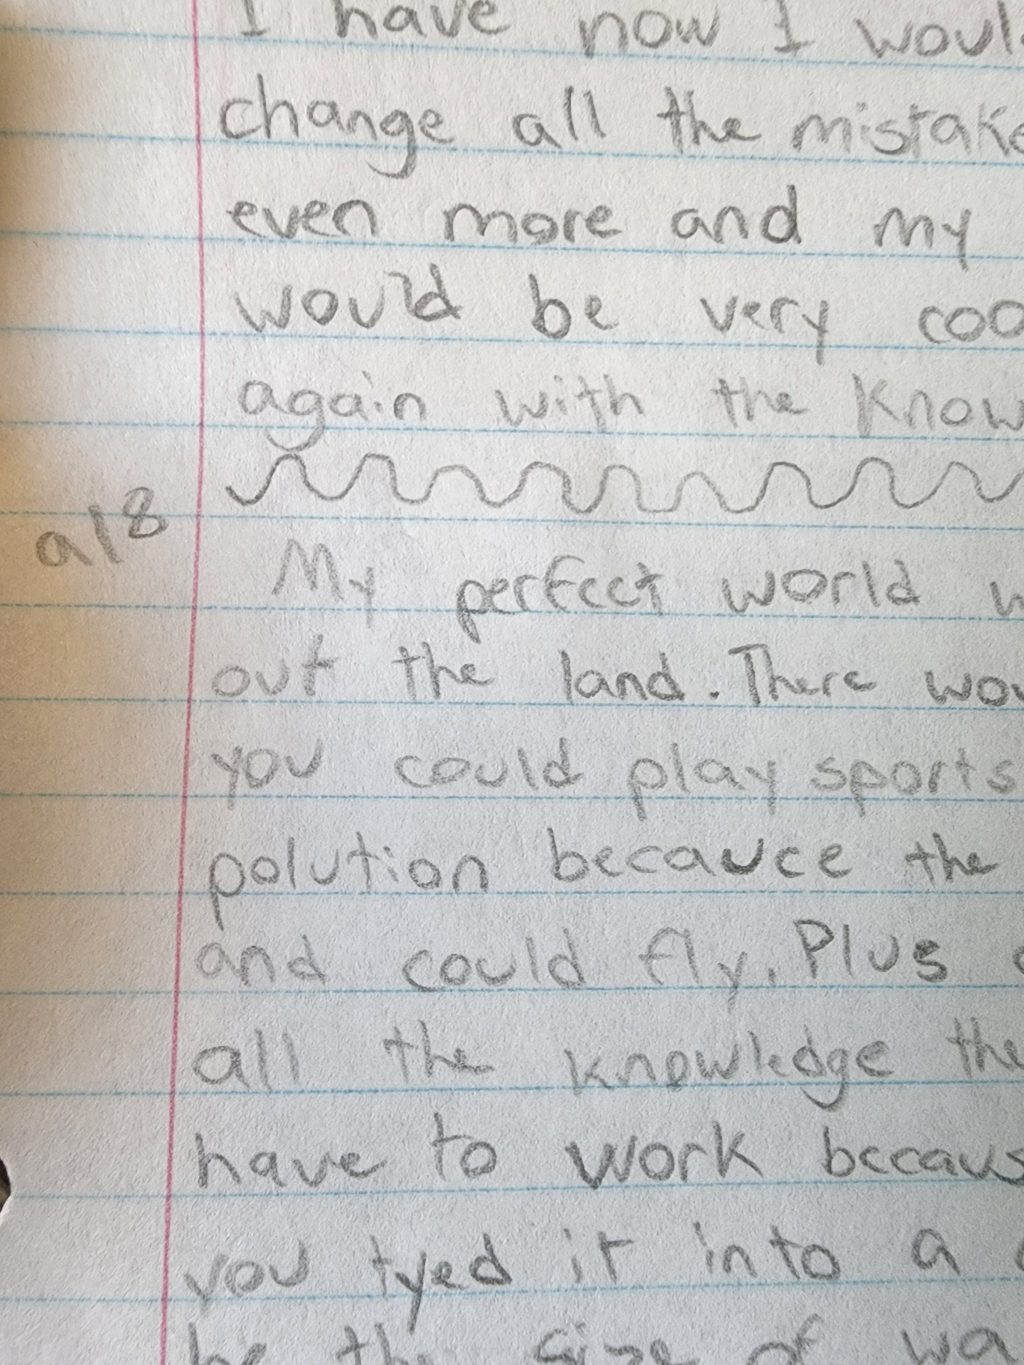 I have now I woul
change all the mistake
even more and my
would be very coo
again with the know
a/8
My perfect world w
out the land. There wou
you could play sports
polution becauce the
and could fly. Plus
all the knowledge the
have to work becaus
you tyed it into a
be the size of wa